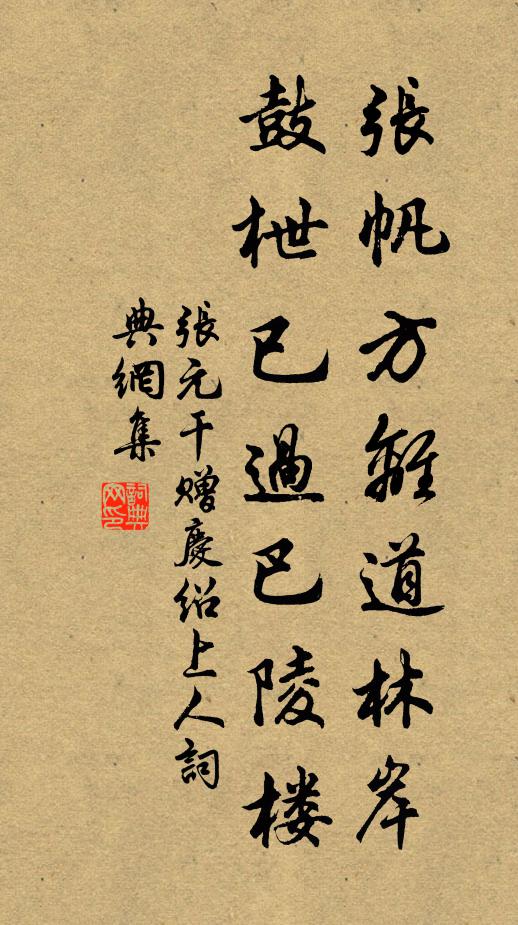 張帆方離道林岸
鼓枻已過巴陵楼
張元干贈慶紹上人詞
典網集
詞典
网印